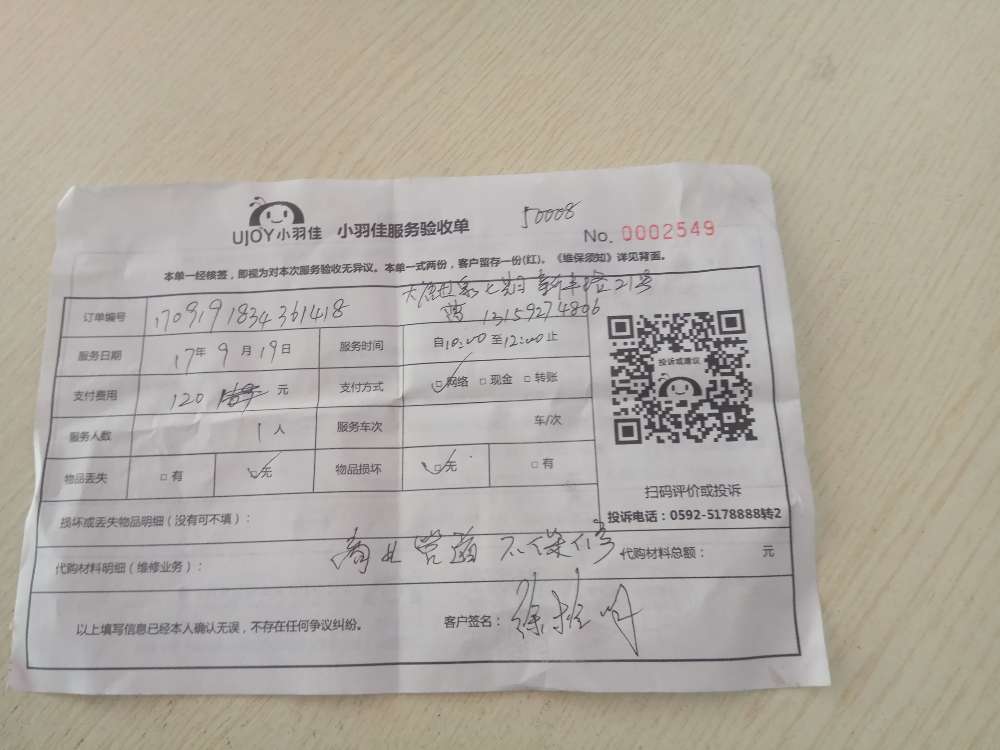 UJOY小羽佳 小羽佳服务验收单 50008
No. 0002549
本单一经核签，即视为对本次服务验收无异议。本单一式两份，客户留存一份(红)。《维保须知》详见背面。
订单编号 170919183436 1418 大唐世家七期 新丰路21号
13159274806
服务日期 17年 9月 19日 服务时间 自10:00至12:00止
支付费用 120 元 支付方式 □网络 □现金 □转账
服务人数 1人 服务车次 车/次
物品丢失 □有 □无 物品损坏 □无 □有
投诉或建议
扫码评价或投诉
投诉电话：0592-5178888转2
损坏或丢失物品明细（没有可不填）：
代购材料明细（维修业务）： 商业管道不保修 代购材料总额： 元
以上填写信息已经本人确认无误，不存在任何争议纠纷。 客户签名：